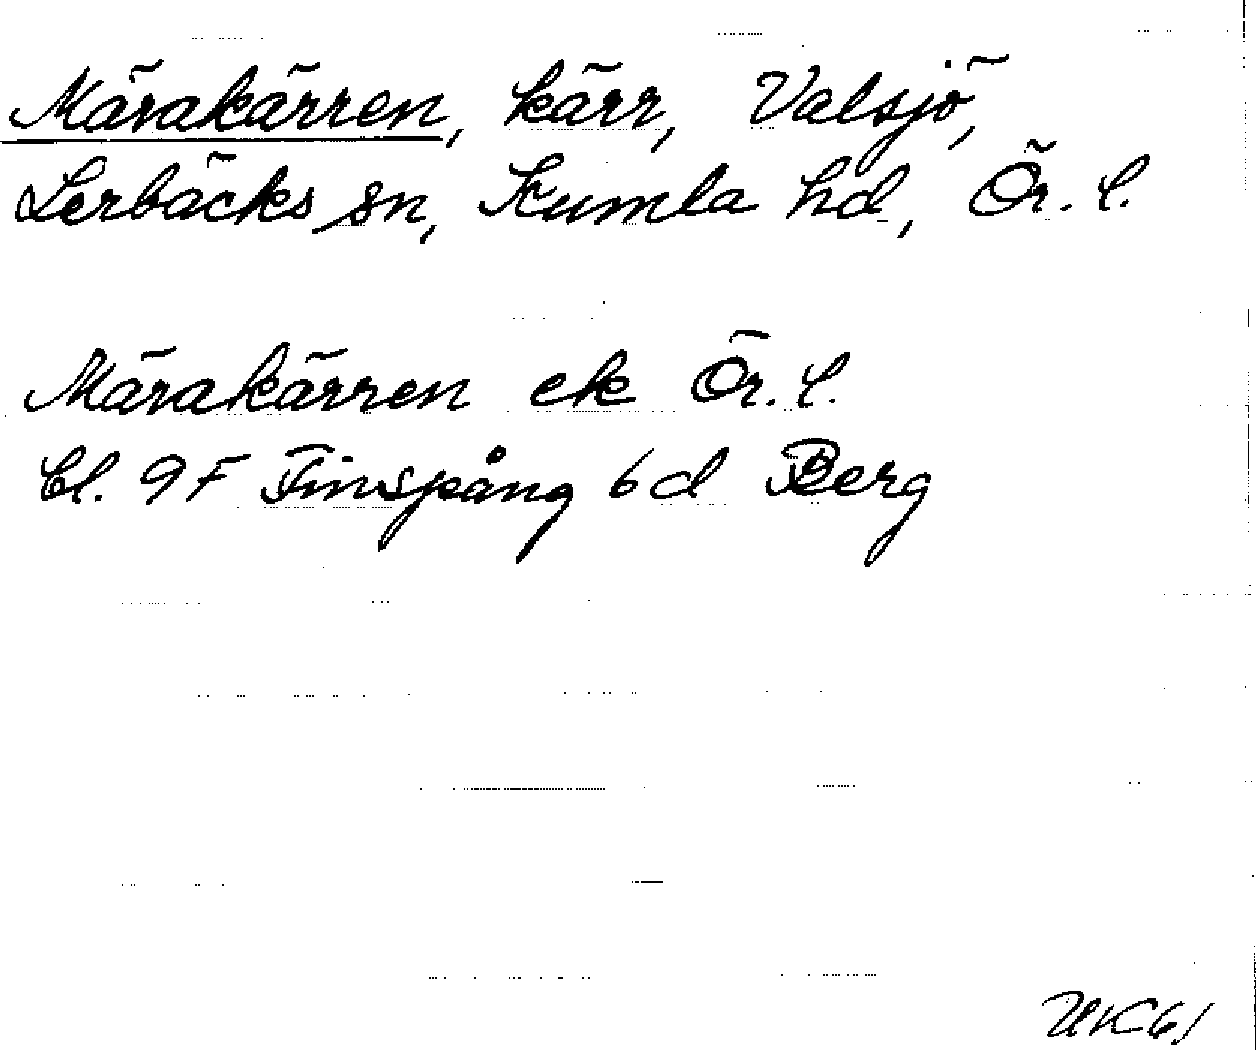 Märakärren, kärr, Valsjö,
Lerbäcks sn, Kumla hd, Ör. l.
Märakärren ek Ör. l.
bl. 9F Finspång 6d Berg
UK61